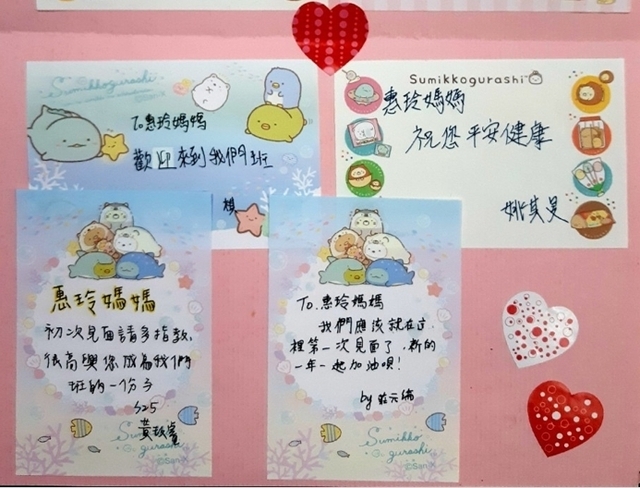 Sumikkogurashi
To惠玲媽媽
歡迎來到我們班
Sumikkogurashi
惠玲媽媽
祝您平安健康
姚其旻
惠玲媽媽
初次見面請多指教,
很高興您成為我們
班的一份子
S25
Sumikko
gurashi
To.惠玲媽媽
我們應該就在這
裡第一次見面了,新的
一年一起加油唄!
by
Sumikko
gurashi